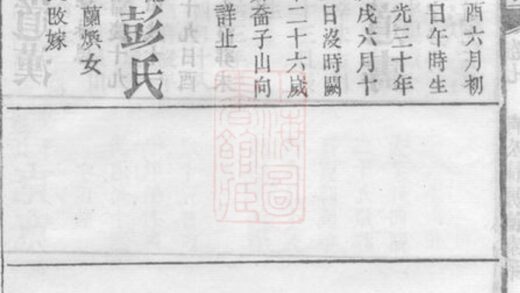 酉六月初
日午時生
光三十年
戌六月十
日沒時闕
二十六歲
喬子山向
詳止
彭氏
蘭煥女
改嫁